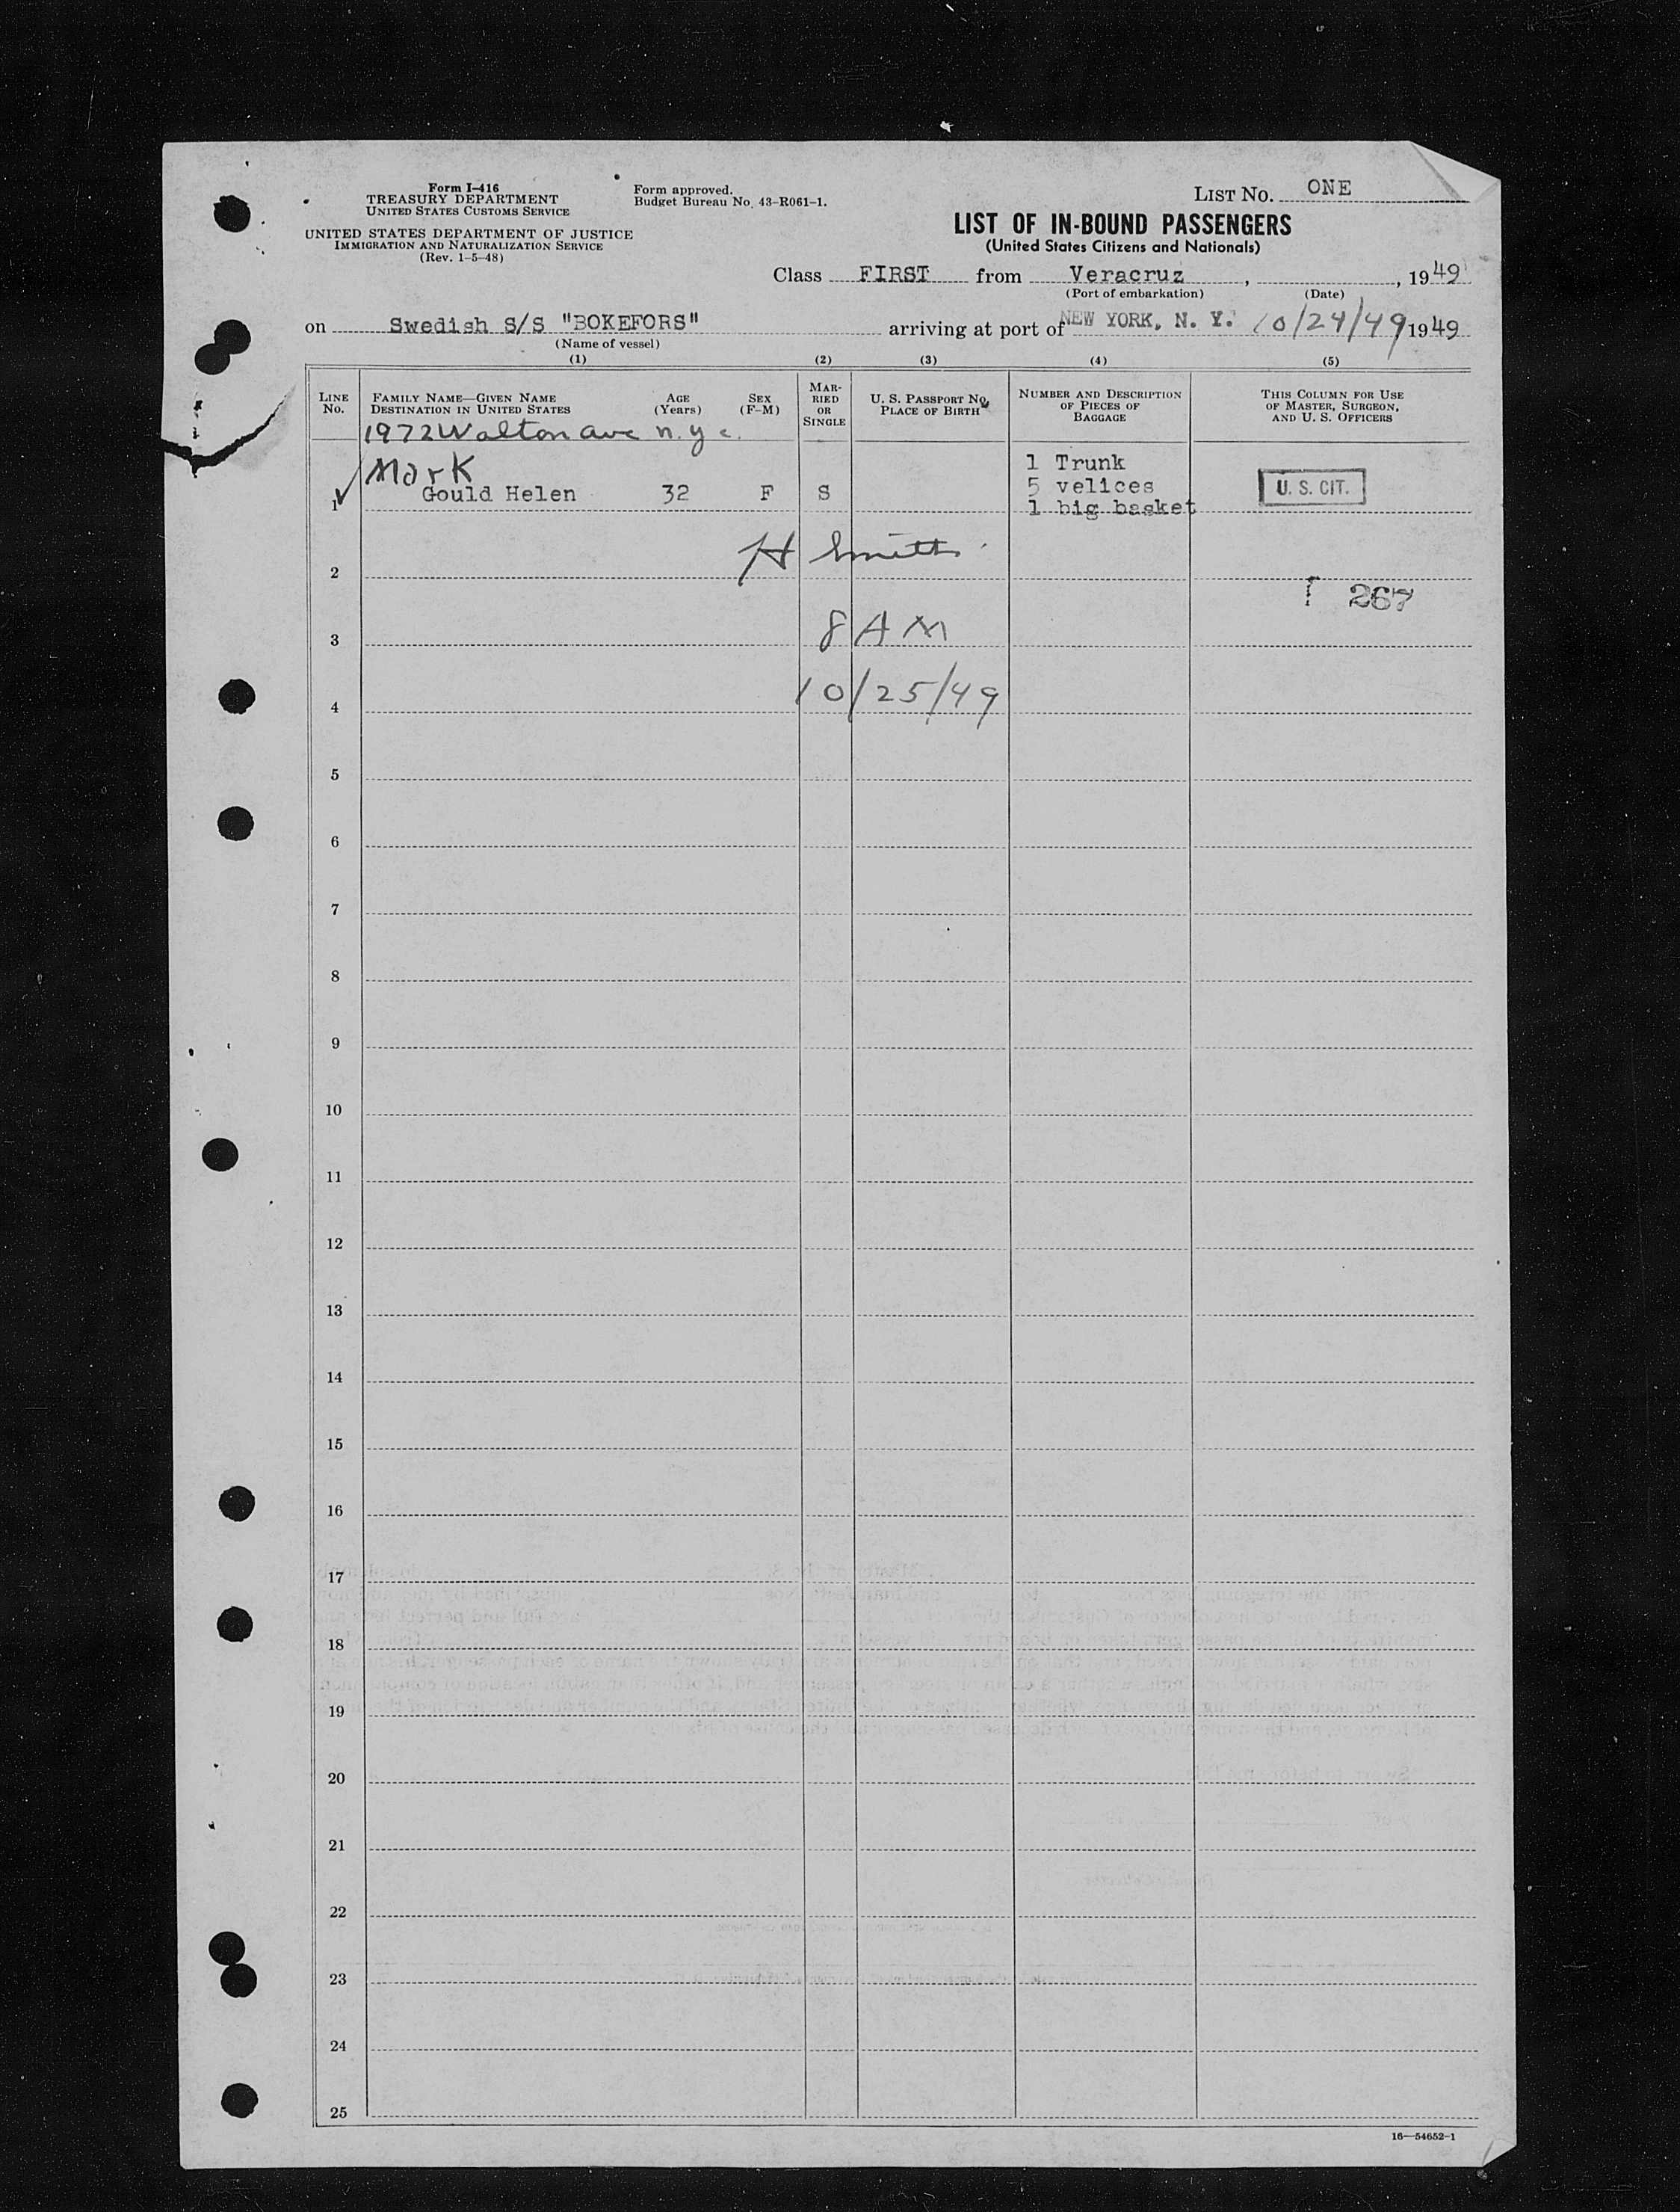 Form I-416
TREASURY DEPARTMENT
UNITED STATES CUSTOMS SERVICE
UNITED STATES DEPARTMENT OF JUSTICE
IMMIGRATION AND NATURALIZATION SERVICE
(Rev. 1-5-48)
Form approved.
Budget Bureau No. 43-R061-1.
LIST NO. ONE
LIST OF IN-BOUND PASSENGERS
(United States Citizens and Nationals)
Class FIRST from Veracruz, , 1949
(Port of embarkation) (Date)
on Swedish S/S "BOKEFORS" arriving at port of NEW YORK, N. Y. 10/24/49 1949
(Name of vessel)
(1) (2) (3) (4) (5)
LINE No. FAMILY NAME—GIVEN NAME DESTINATION IN UNITED STATES AGE (Years) SEX (F-M) MARRIED OR SINGLE U. S. PASSPORT No. PLACE OF BIRTH NUMBER AND DESCRIPTION OF PIECES OF BAGGAGE THIS COLUMN FOR USE OF MASTER, SURGEON, AND U. S. OFFICERS
1972 Walton ave n.y c.
Mark
1 Gould Helen 32 F S 1 Trunk
5 velices
1 big basket
U. S. CIT.
H Smith
2
267
8 AM
3
10/25/49
4
5
6
7
8
9
10
11
12
13
14
15
16
17
18
19
20
21
22
23
24
25
16—54652-1